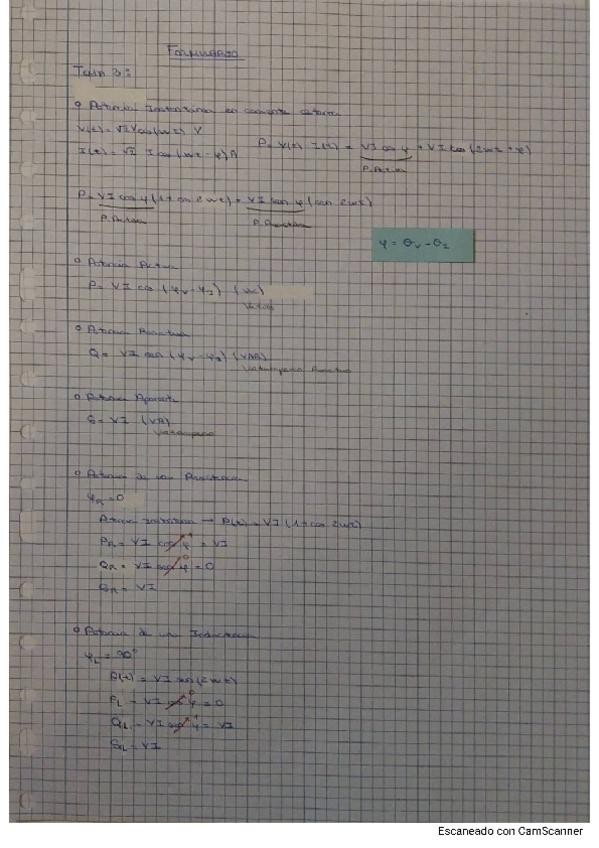 FORMULARIO
Tema 3:
o Potencia Instantanea en corriente alterna
V(t) = √2 V cos(wt) V
I(t) = √2 I cos(wt - φ) A
P = V(t) · I(t) = VI cos φ + VI cos(2wt + φ)
P. Activa
P = VI cos φ (1 + cos 2wt) + VI sen φ (sen 2wt)
P. Activa P. Reactiva
φ = θv - θI
o Potencia Activa
P = VI cos (φv - φI) (W)
Vatios
o Potencia Reactiva
Q = VI sen (φv - φI) (VAR)
Voltamperio Reactivo
o Potencia Aparente
S = VI (VA)
Voltamperio
o Potencia de una Resistencia
φR = 0
Potencia Instantanea → P(t) = VI (1 + cos 2wt)
PR = VI cos φ 1 = VI
QR = VI sen φ 0 = 0
SR = VI
o Potencia de una Inductancia
φL = 90°
P(t) = VI sen(2wt)
PL = VI cos φ 0 = 0
QL = VI sen φ 1 = VI
SL = VI
Escaneado con CamScanner